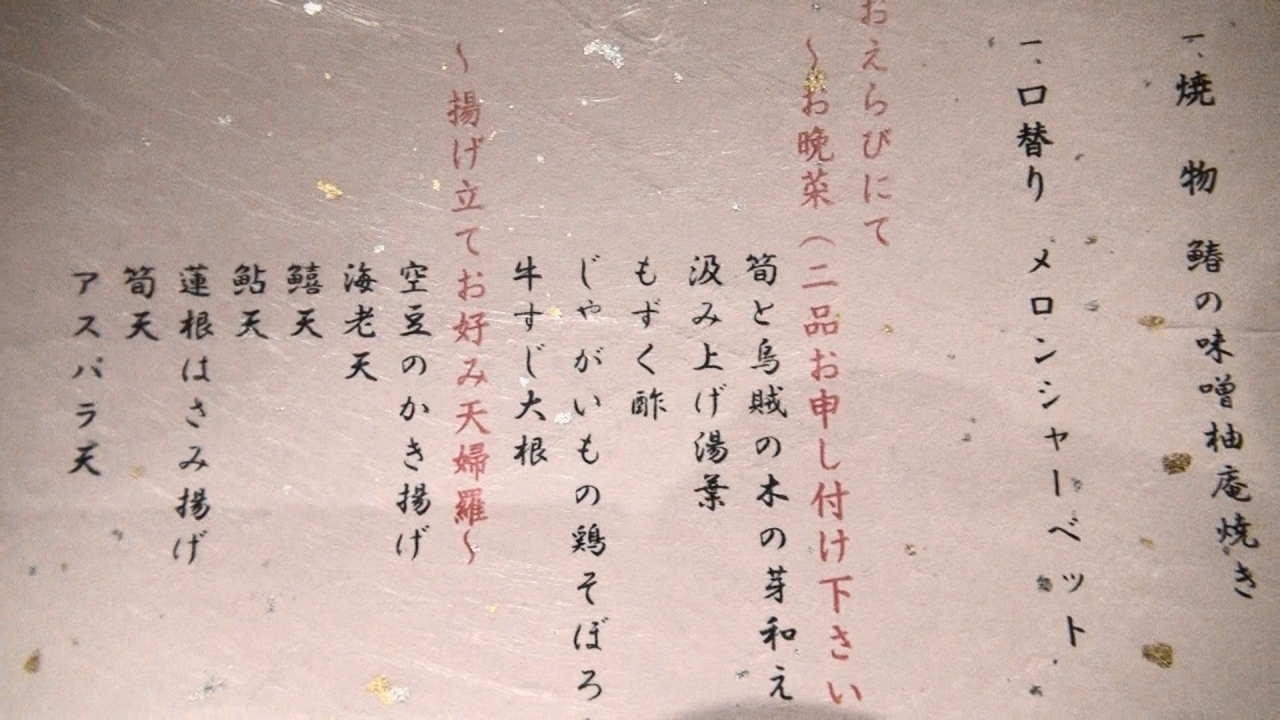 一、焼 物 鰆の味噌柚庵焼き
一、口替り メロンシャーベット
おえらびにて
〜お晩菜（二品お申し付け下さい
筍と烏賊の木の芽和え
汲み上げ湯葉
もずく酢
じゃがいもの鶏そぼろ
牛すじ大根
〜揚げ立てお好み天婦羅〜
空豆のかき揚げ
海老天
鱚天
鮎天
蓮根はさみ揚げ
筍天
アスパラ天